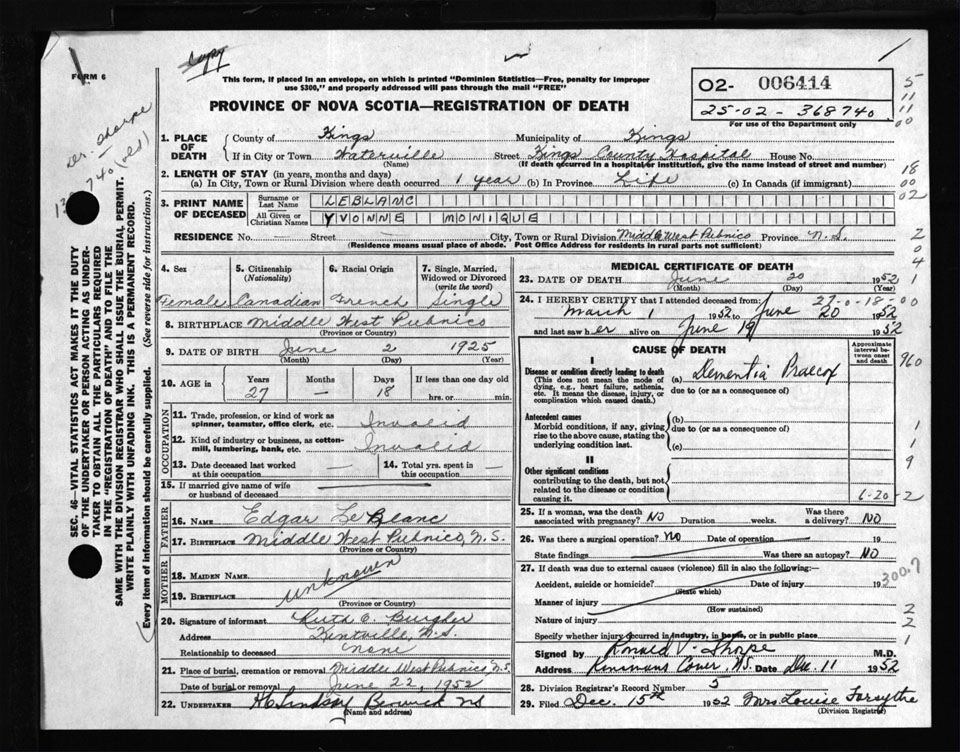 Copy
FORM 6
This form, if placed in an envelope, on which is printed "Dominion Statistics—Free, penalty for improper
use $300," and properly addressed will pass through the mail "FREE"
PROVINCE OF NOVA SCOTIA—REGISTRATION OF DEATH
O2- 006414
25-02-368740
For use of the Department only
Dr. Sharpe
740
SEC. 46—VITAL STATISTICS ACT MAKES IT THE DUTY
OF THE UNDERTAKER OR PERSON ACTING AS UNDER-
TAKER TO OBTAIN ALL THE PARTICULARS REQUIRED
IN THE "REGISTRATION OF DEATH" AND TO FILE THE
SAME WITH THE DIVISION REGISTRAR WHO SHALL ISSUE THE BURIAL PERMIT.
WRITE PLAINLY WITH UNFADING INK. THIS IS A PERMANENT RECORD.
(Every item of information should be carefully supplied. (See reverse side for instructions.)
1. PLACE OF DEATH
County of Kings Municipality of Kings
If in City or Town Waterville Street Kings County Hospital House No.
(Name) (If death occurred in a hospital or institution, give the name instead of street and number)
2. LENGTH OF STAY (in years, months and days)
(a) In City, Town or Rural Division where death occurred 1 year (b) In Province Life (c) In Canada (if immigrant)
3. PRINT NAME OF DECEASED
Surname or Last Name LEBLANC
All Given or Christian Names YVONNE MONIQUE
RESIDENCE No. — Street — City, Town or Rural Division Middle West Pubnico Province N.S.
(Residence means usual place of abode. Post Office Address for residents in rural parts not sufficient)
4. Sex Female
5. Citizenship (Nationality) Canadian
6. Racial Origin French
7. Single, Married, Widowed or Divorced (write the word) Single
8. BIRTHPLACE Middle West Pubnico
(Province or Country)
9. DATE OF BIRTH June 2 1925
(Month) (Day) (Year)
10. AGE in Years 27 Months — Days 18 If less than one day old hrs. or min.
OCCUPATION
11. Trade, profession or kind of work as spinner, teamster, office clerk, etc. Invalid
12. Kind of industry or business, as cotton-mill, lumbering, bank, etc. Invalid
13. Date deceased last worked at this occupation —
14. Total yrs. spent in this occupation —
15. If married give name of wife or husband of deceased
FATHER
16. NAME Edgar LeBlanc
17. BIRTHPLACE Middle West Pubnico, N.S.
(Province or Country)
MOTHER
18. MAIDEN NAME
19. BIRTHPLACE unknown
(Province or Country)
20. Signature of informant Ruth O.
Address Kentville, N.S.
Relationship to deceased none
21. Place of burial, cremation or removal Middle West Pubnico, N.S.
Date of burial or removal June 22, 1952
22. UNDERTAKER H C Lindsay Berwick NS
(Name and address)
MEDICAL CERTIFICATE OF DEATH
23. DATE OF DEATH June 20 1952
(Month) (Day) (Year)
24. I HEREBY CERTIFY that I attended deceased from: 27-0-18-00
March 1 1952 to June 20 1952
and last saw her alive on June 19 1952
CAUSE OF DEATH
Approximate interval between onset and death
I
Disease or condition directly leading to death (a) Dementia Praecox
(This does not mean the mode of dying, e.g., heart failure, asthenia, etc. It means the disease, injury, or complication which caused death.)
due to (or as a consequence of)
Antecedent causes (b)
Morbid conditions, if any, giving rise to the above cause, stating the underlying condition last.
due to (or as a consequence of)
(c)
II
Other significant conditions
contributing to the death, but not related to the disease or condition causing it.
6-20-2
25. If a woman, was the death associated with pregnancy? NO Duration weeks. Was there a delivery? NO
26. Was there a surgical operation? NO Date of operation 19
State findings Was there an autopsy? NO
27. If death was due to external causes (violence) fill in also the following:—
Accident, suicide or homicide? Date of injury 19
(State which)
Manner of injury
(How sustained)
Nature of injury
Specify whether injury occurred in industry, in home, or in public place
Signed by Ronald V. Sharpe M.D.
Address NS Date Dec. 11 1952
28. Division Registrar's Record Number 5
29. Filed Dec. 15th 1952 Mrs. Louise Forsythe
(Division Registrar)
5
11
11
00
18
00
02
2
0
4
1
960
1
1
9
300.7
2
2
1